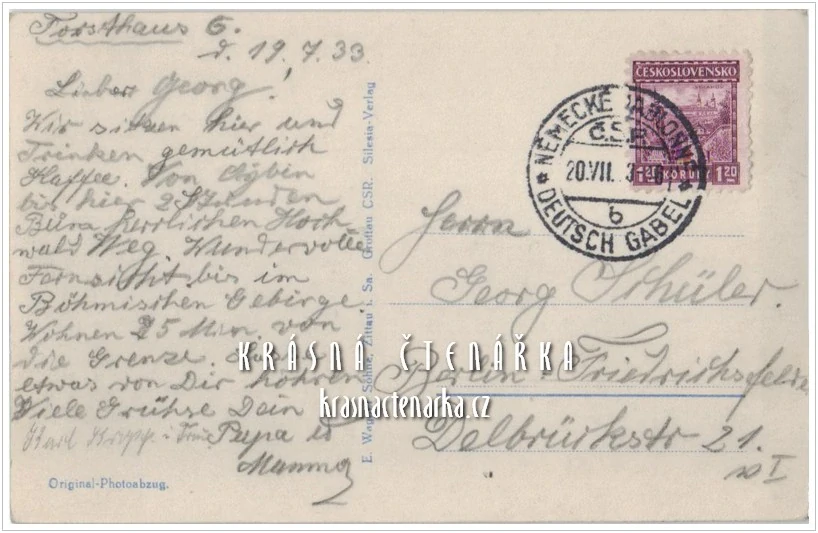 Forsthaus G.
d. 19.7.33
Lieber Georg!
Wir sitzen hier und
Trinken gemütlich
Kaffee. Von Oybin
bis hier 2 Stunden
herrlichen Hoch
wald Weg. Wundervolle
Fernsicht bis im
Böhmischen Gebirge.
Wohnen 25 Min von
die Grenze.
etwas von Dir hohren
Viele Grühse Dein
Papa u
Mamma
Original-Photoabzug.
E. Wag Söhne, Zittau i. Sa. Grottau CSR. Silesia-Verlag
ČESKOSLOVENSKO
1.20 KORUN 1.20
NĚMECKÉ JABLONNÉ
Č.S.P.
20.VII.3
b
* DEUTSCH GABEL *
Herrn
Georg Schüler.
Berlin-Friedrichsfelde
Delbrückstr 21.
I
KRÁSNÁ ČTENÁŘKA
krasnactenarka.cz